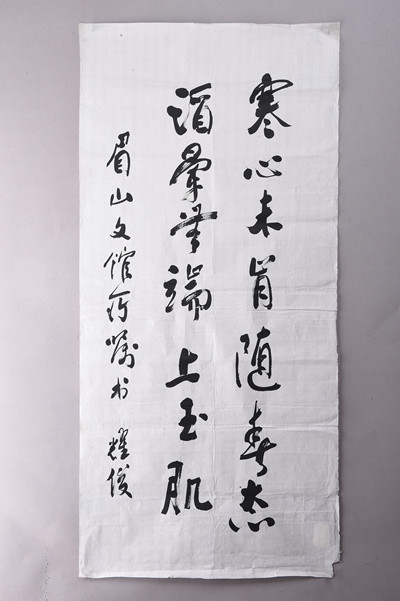 寒心未肯随春态
酒晕無端上玉肌
眉山文馆所嘱书 耀俊